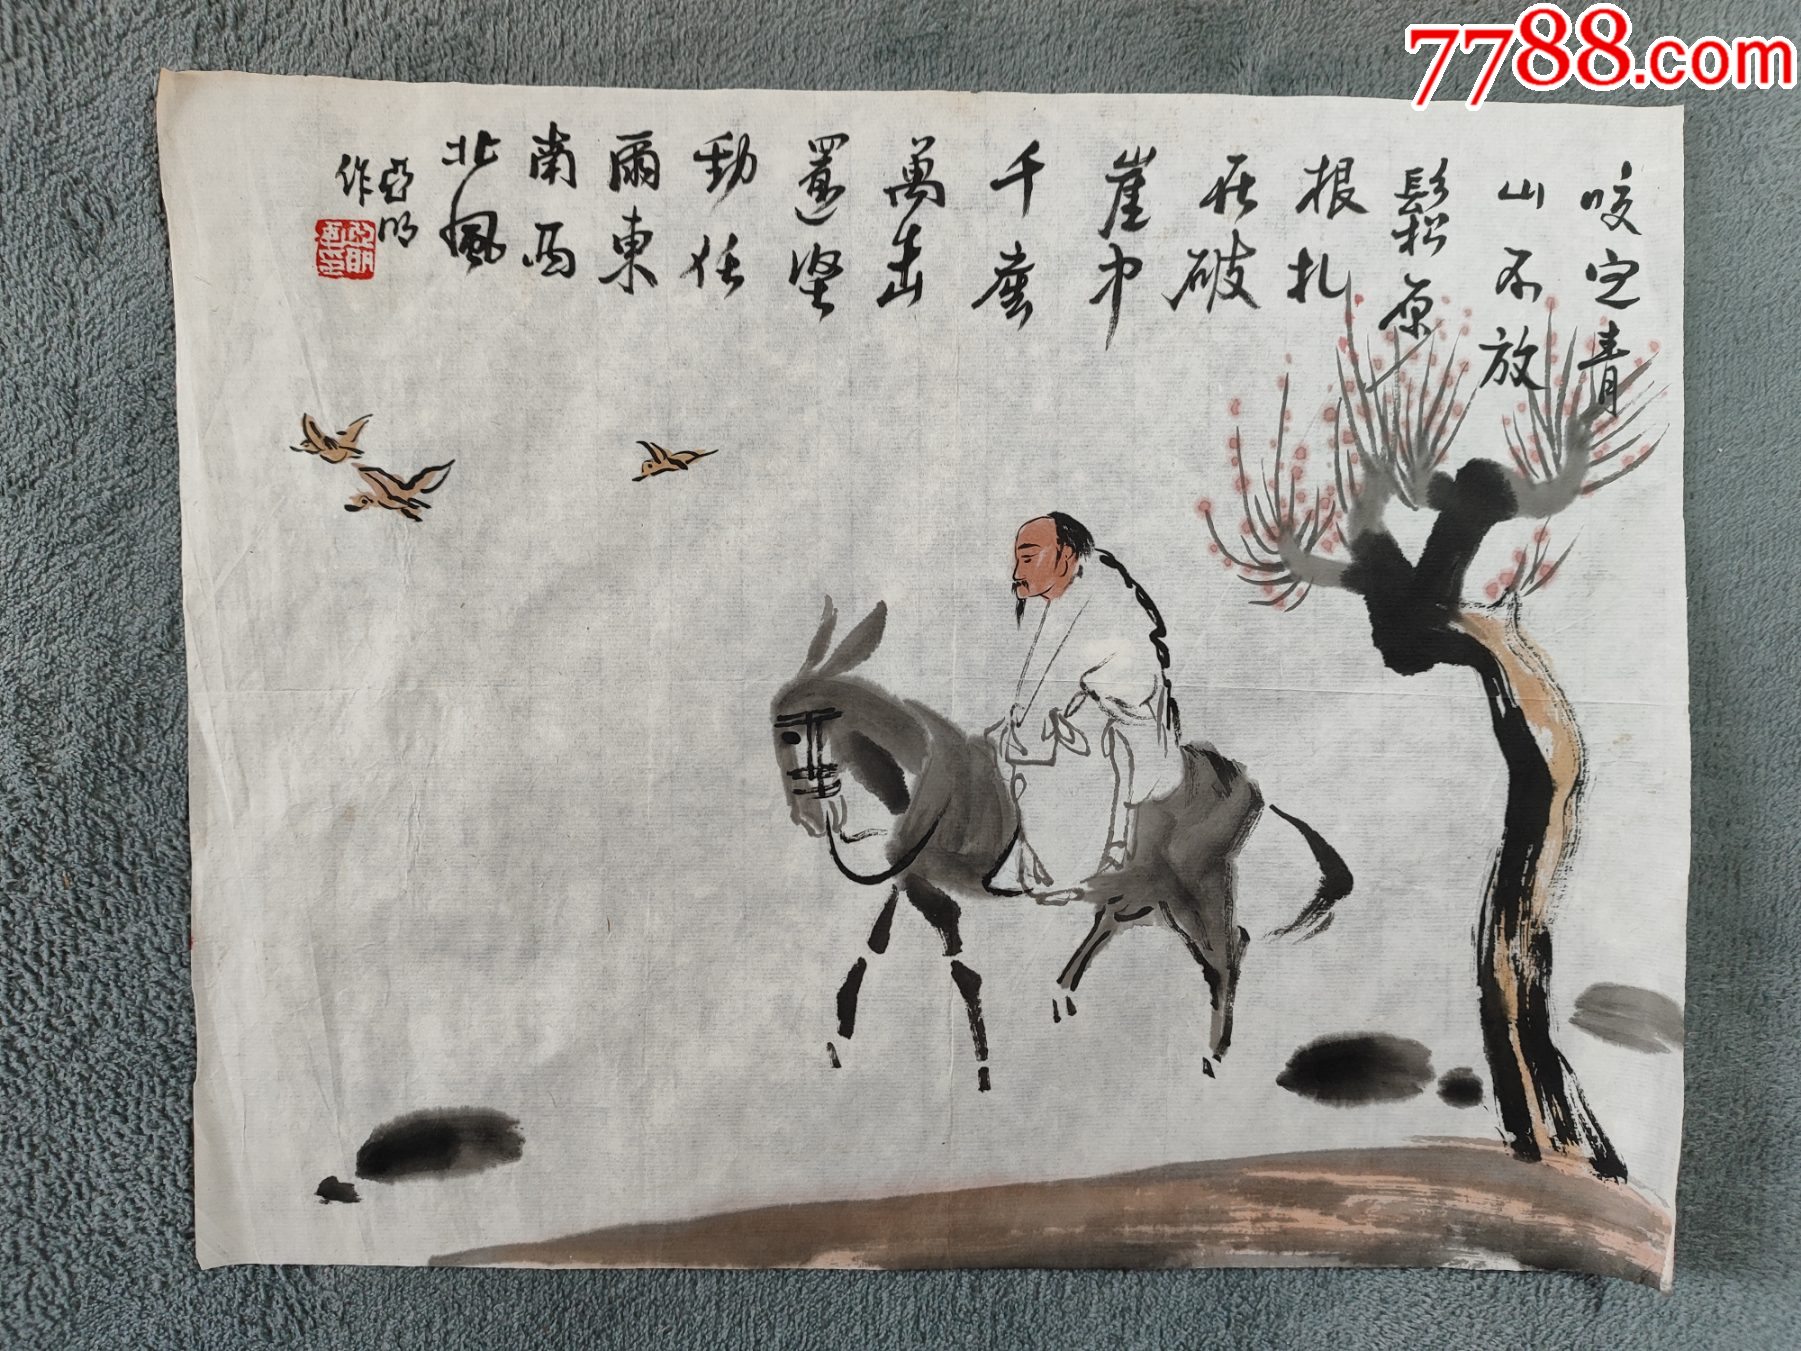 7788.com
咬定青
山不放
鬆原
根扎
在破
崖中
千磨
萬击
還坚
勁任
爾東
南西
北風
亞明
作
亞明